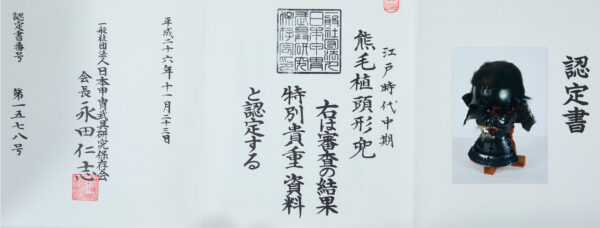 認定書
江戸時代中期
熊毛植頭形兜
右は審査の結果
特別貴重資料
と認定する
平成二十六年十一月二十三日
一般社団法人日本甲冑武具研究保存会
会長 永田仁志
認定書番号 第一五七八号